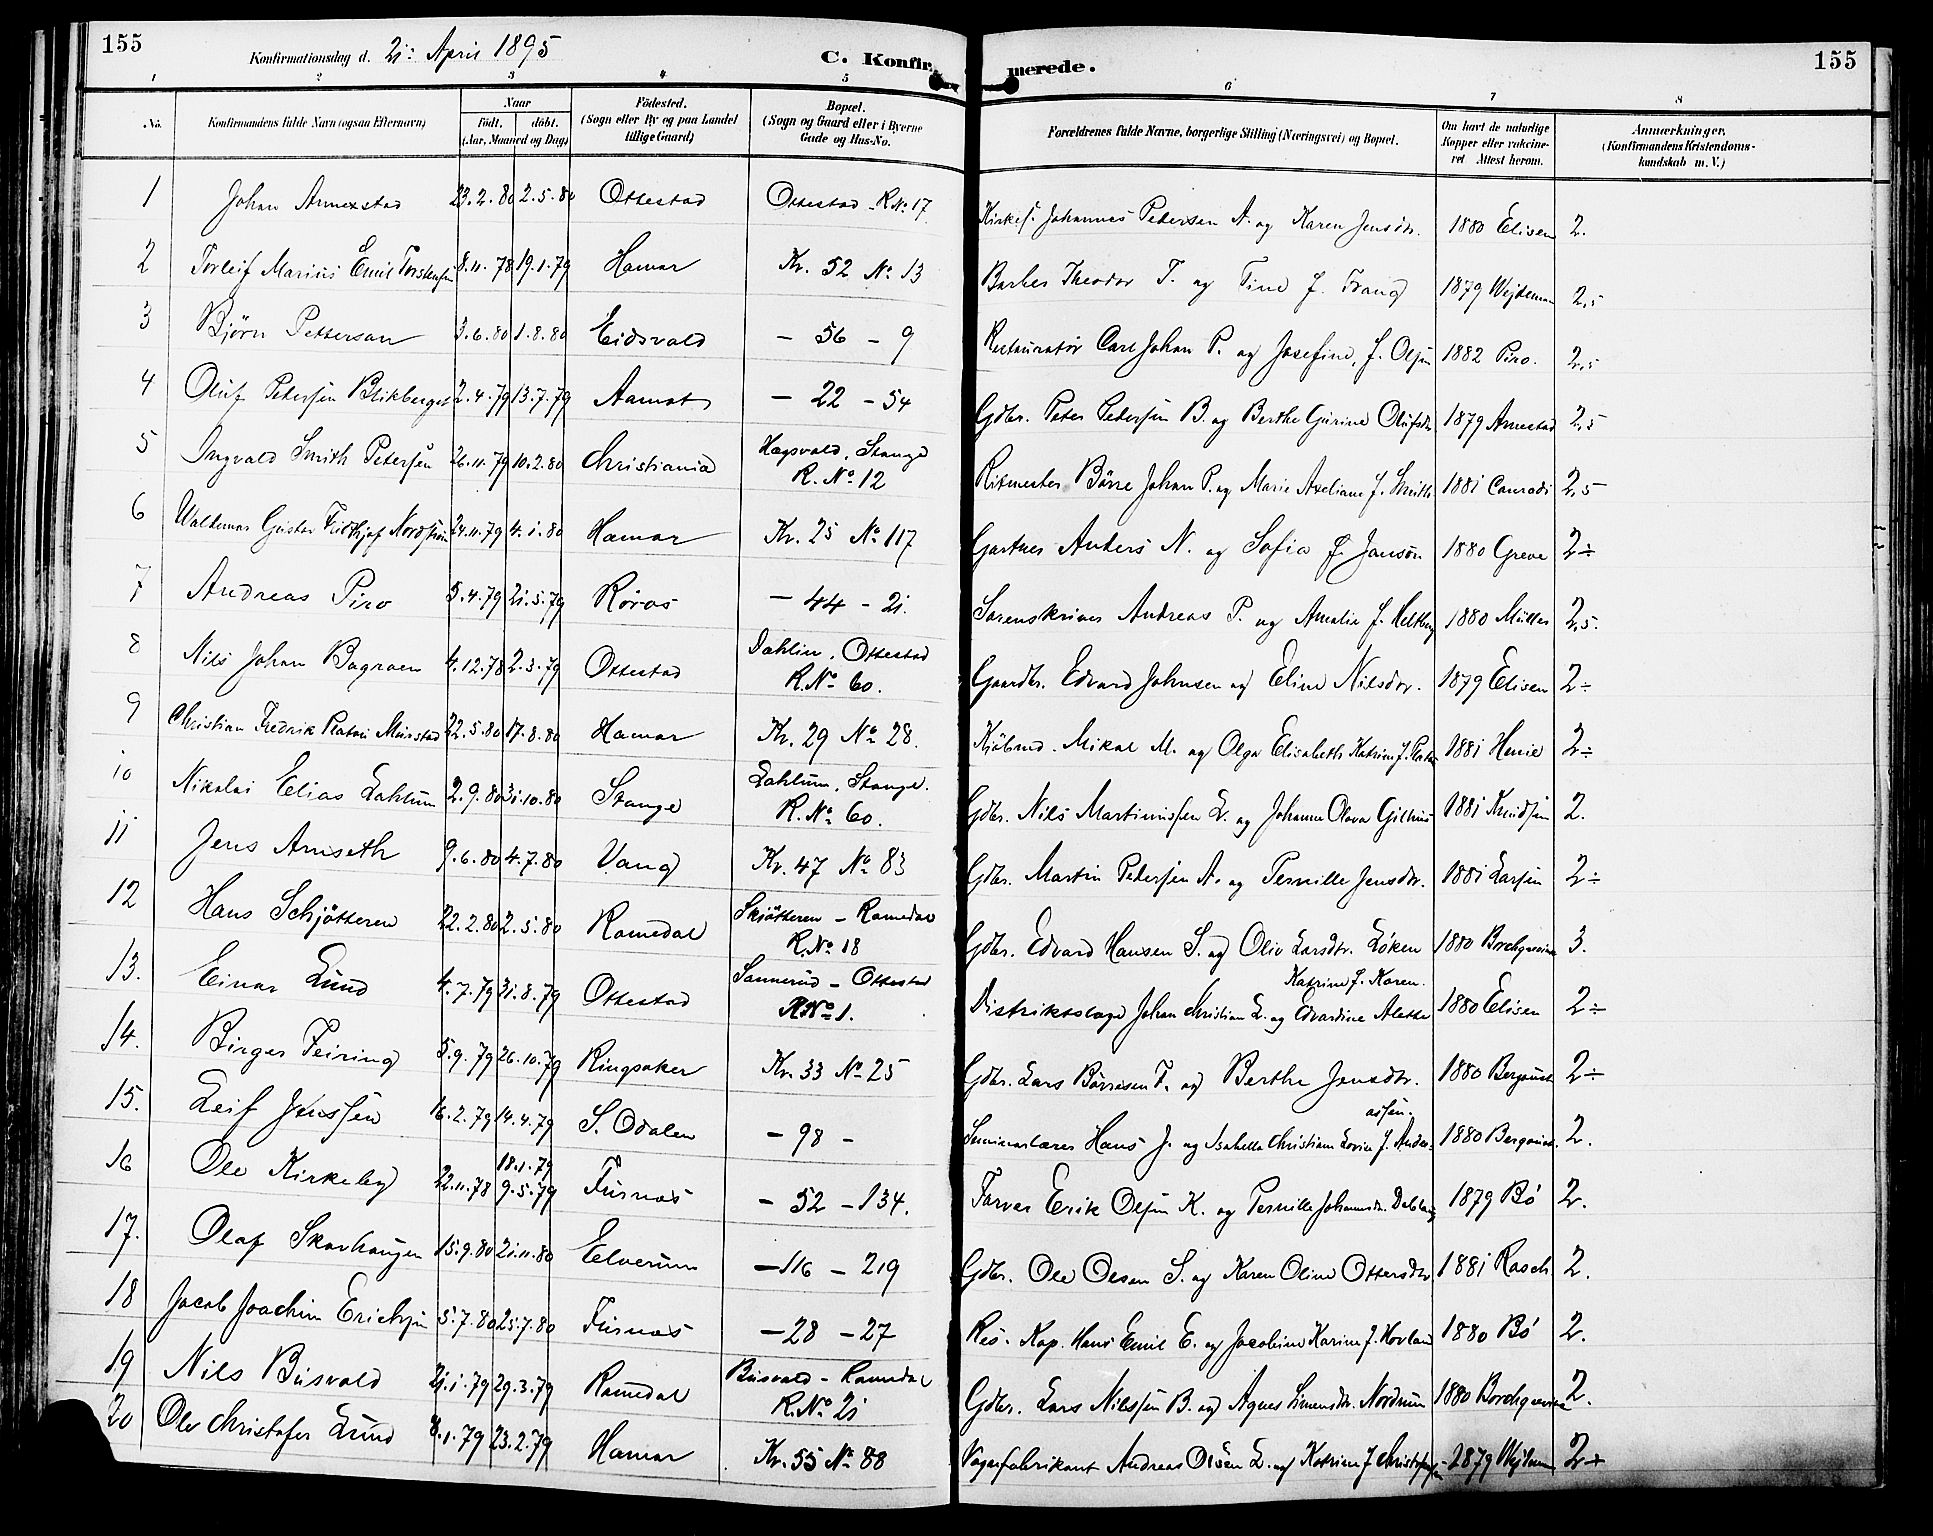 155
Konfirmationsdag d. 21: April 1895
C. Konfirmerede.
155
1 2 3 4 5 6 7 8
No.
Konfirmandens fulde Navn (ogsaa Efternavn)
Naar
født. døbt.
(Aar, Maaned og Dag)
Fødested.
(Sogn eller By og paa Landet tillige Gaard)
Bopæl.
(Sogn og Gaard eller i Byerne Gade og Hus-No.
Forældrenes fulde Navne, borgerlige Stilling (Næringsvei) og Bopæl.
Om havt de naturlige Kopper eller vakcineret Attest herom.
Anmærkninger.
(Konfirmandens Kristendomskundskab m. V.)
1 Johan Arnestad 23.2.80 2.5.80 Ottestad Ottestad R.No. 17 Johannes Pedersen A. og Karen Jensdr. 1880 Elisen 2.
2 Torleif Marius Emil Torstensen 8.11.78 19.1.79 Hamar Kv. 52 No 13 Barber Theodor T. og Tine f. Frang 1879 2,5
3 Bjørn Petterson 3.6.80 1.8.80 Eidsvold - 56 - 9 Restauratør Carl Johan P. og Josefine f. Olsen 1882 Piro. 2,5
4 Oluf Petersen Blikberget 2.4.79 13.7.79 Aamot - 22 - 54 Gdbr. Peter Pedersen B. og Berthe Gurine Olufsdr 1879 Arnestad 2,5
5 Ingvald Smith Petersen 26.11.79 10.2.80 Christiania Hegsvold, Stange R. No. 12 Ritmester Børre Johan P. og Marie Axeliane f. Smith 1881 Conradi 2,5
6 Waldemar Gustav Fridthjof Nordstrøm 24.11.79 4.1.80 Hamar Kv. 25 No 117 Gartner Anders N. og Sofia f. Janson 1880 Greve 2÷
7 Andreas Piro 5.4.79 21.5.79 Røros - 44 - 21. Sorenskriver Andreas P. og Amalie f. Heltberg 1880 Müller 2,5.
8 Nils Johan Bagroen 4.12.78 2.3.79 Ottestad Dahlin, Ottestad R.No 60. Gaardbr. Edvard Johnsen og Eline Nilsdr. 1879 Elisen 2÷
9 Christian Fredrik Platou Meirstad 22.5.80 17.8.80 Hamar Kv. 29 No 28. Kjøbmd. Mikal M. og Olga Elisabeth Katrine f. Platou 1881 2÷
10 Nikolai Elias Dahlum 2.9.80 31.10.80 Stange Dahlum, Stange. R. No 60. Gdbr. Nils Martinussen D. og Johanne Olava Gillund 1881 Knudsen 2.
11 Jens Arnseth 9.6.80 4.7.80 Vang Kv. 47 No 83 Gdbr. Martin Pedersen A. og Pernille Jensdtr. 1881 Larsen 2÷
12 Hans Schjötteren 22.2.80 2.5.80 Romedal Skiötteren - Romedal R.No 18 Gdbr. Edvard Hansen S. og Oliv Larsdtr. Løken 1880 Borchgrevink 3.
13. Einar Lund 4.7.79 31.8.79 Ottestad Sannerud - Ottestad R.No 1. Distriktslæge Johan Christian L. og Edvardine Alette Katrine f. Koren. 1880 Elisen 2÷
14. Birger Feiring 5.9.79 26.10.79 Ringsaker Kv. 33 No 25 Gdbr. Lars Børresen F. og Berthe Jensdtr. 1880 2÷
15. Leif Janssen 16.2.79 14.4.79 S. Odalen - 98 - Seminarlærer Hans J. og Isabella Christiane Lovise f. Andersen. 1880 2.
16 Ole Kirkeby 22.11.78 18.1.79 9.5.79 Furnæs - 52 - 134. Farver Erik Olsen K. og Pernille Johannesdr. 1879 Bö 2.
17. Olaf Skarhaugen 15.9.80 21.11.80 Elverum - 116 - 219 Gdbr. Ole Olsen S. og Karen Oline Ottersdtr 1881 Rasch 2.
18 Jacob Joachim Erichsen 5.7.80 25.7.80 Furnæs - 28 - 27 Res. Kap. Hans Emil E. og Jacobine Karine f. Hovland 1880 Bö 2.
19 Nils Busvold 21.1.79 29.3.79 Romedal Busvold - Romedal R.No 21 Gdbr. Lars Nilssen B. og Agnes Simensdtr. Nordrum 1880 Borchgrevink 2.
20 Ole Christofer Lund 8.1.79 23.2.79 Hamar Kv. 55 No 88 Vognfabrikant Andreas Olsen L. og Katrine f. Christofersen 1879 2+